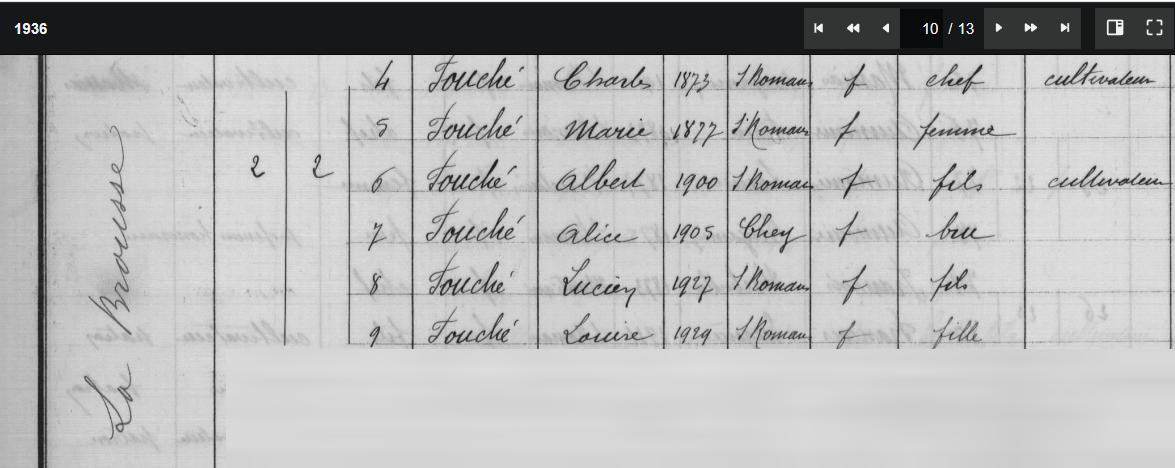 1936
10 / 13
4 Fouché Charles 1873 S Romans f chef cultivateur
5 Fouché Marie 1877 S Romans f femme
2 2 6 Fouché Albert 1900 S Romans f fils cultivateur
7 Fouché Alice 1905 Chey f bru
8 Fouché Lucien 1927 S Romans f fils
9 Fouché Louise 1929 S Romans f fille
La Brousse